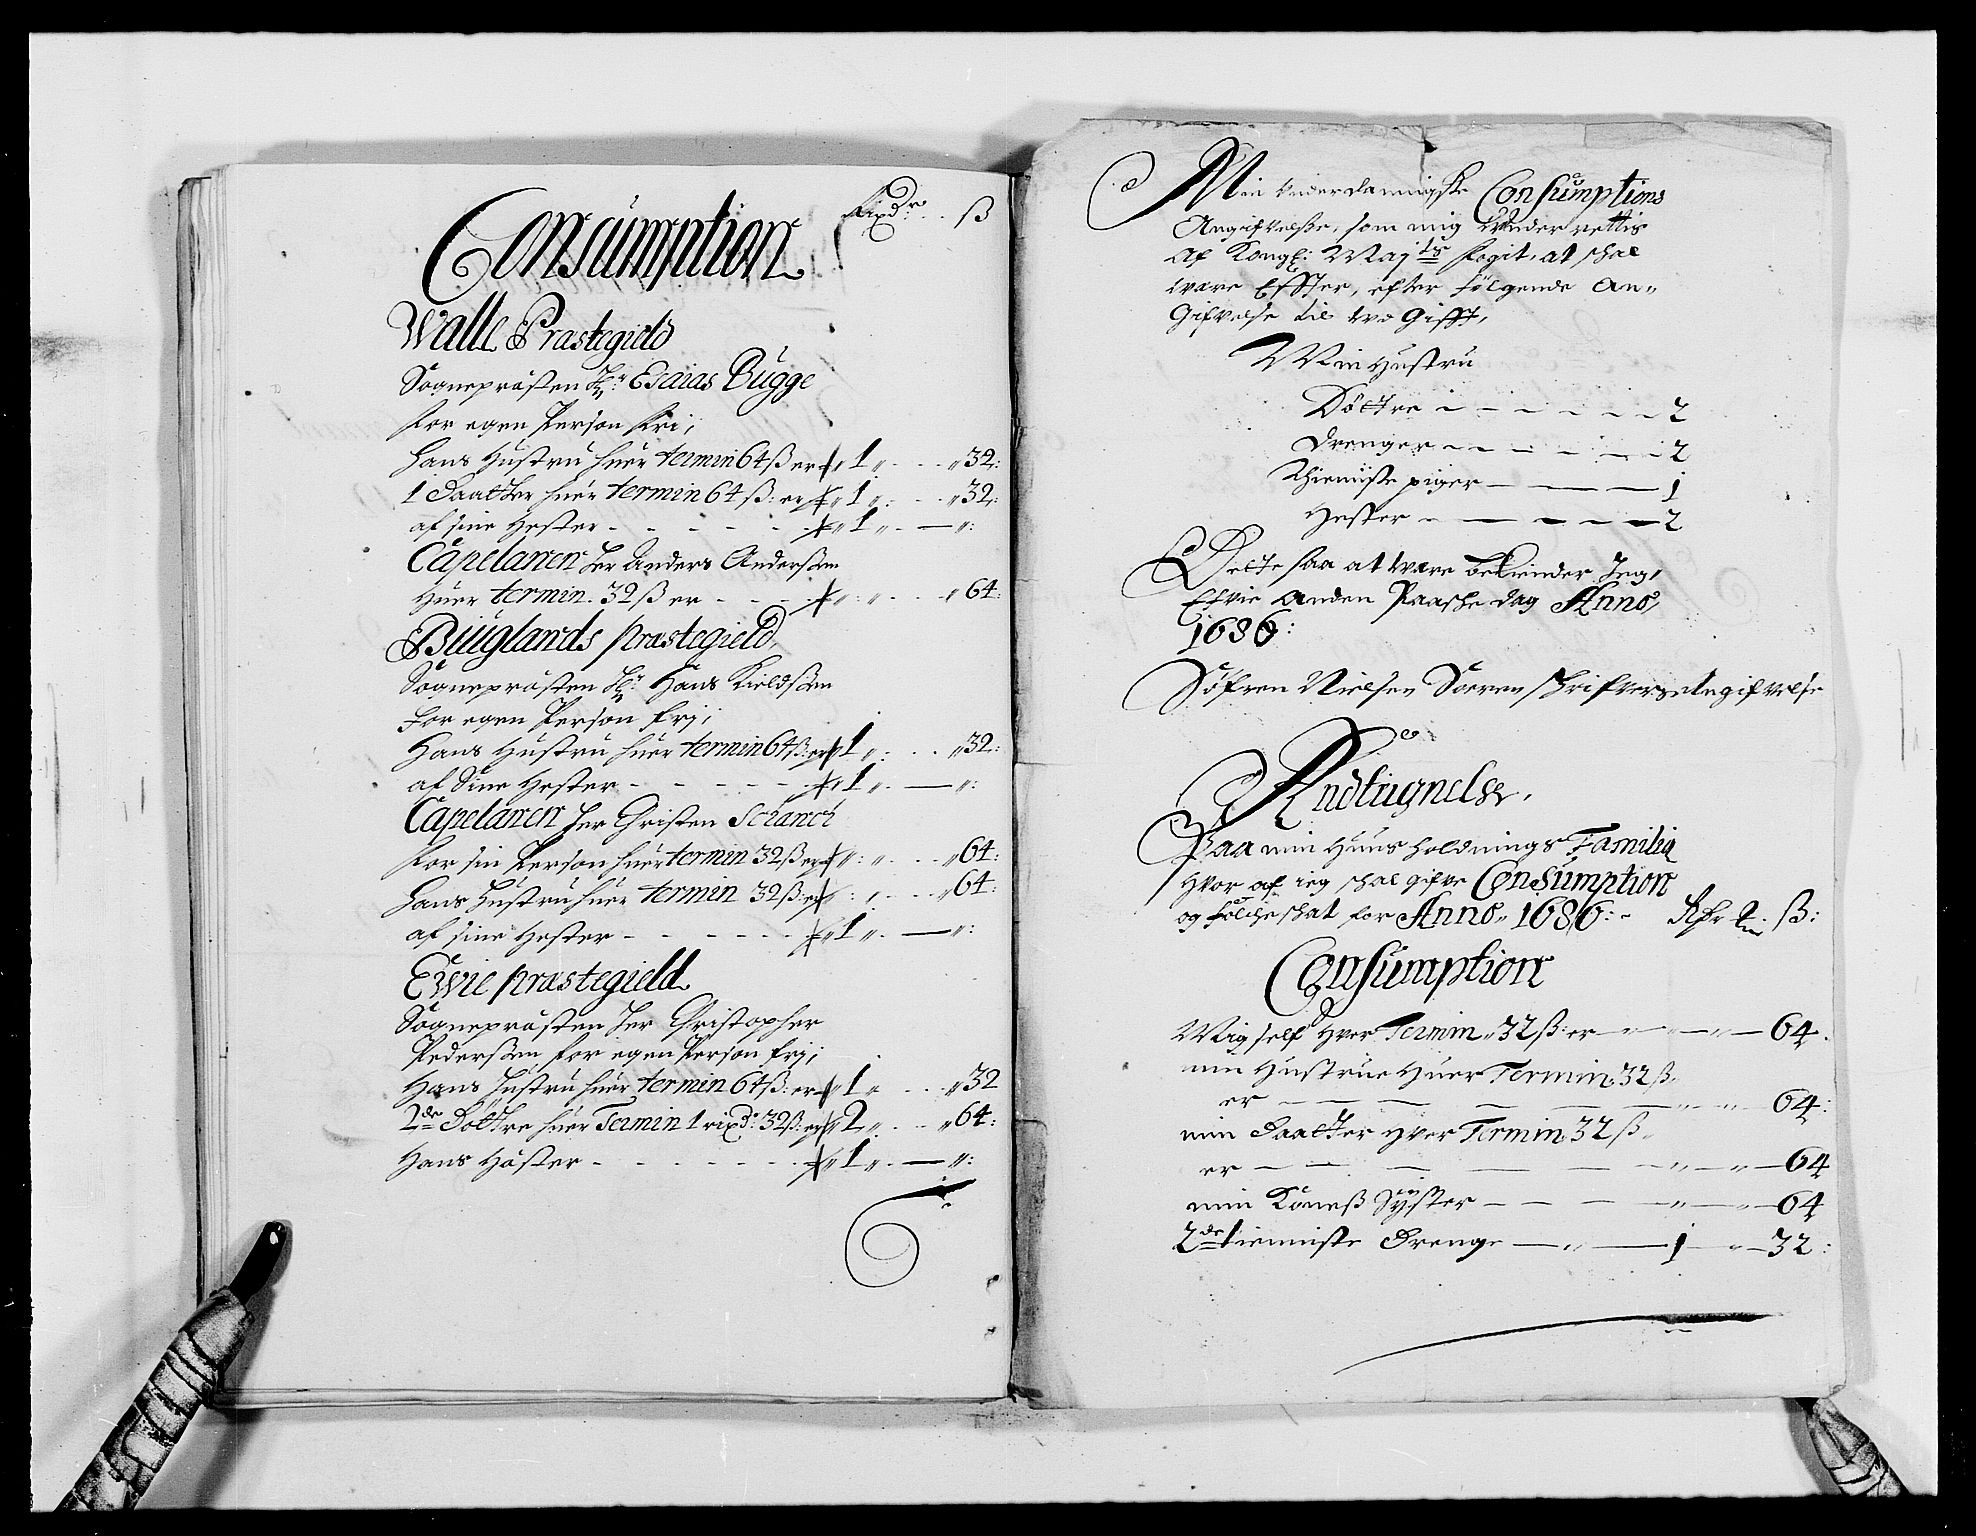 Consumption
Rixdr ß
Walle Præstegield
Sognepræsten Hr: Esaias Bugge
for egen Person fri,
Hans Hustru huer termin 64 ß er 1 32:
1 Daatter huer termin 64 ß: er 1 32:
af sine Hester 1
Capelanen Her Anders Anderßen
Huer termin. 32 ß er 64:
Büuglands præstegield,
Sognepræsten Hr: Hans Kieldßen
for egen Person fri,
Hans Hustru huer termin 64 ß: er 1 32:
af Sine Hester 1
Capelanen Her Christen
for sin Person huer termin 32 ß er 64:
Hans Hustru huer termin 32 ß: er 64:
af sine Hester 1
Ewie præstegield
Sognepræsten Her Christopher
Pederßen for egen Person fri,
Hans Hustru huer termin 64 ß: er 1 32
2de Døttre huer Termin 1 rixd: 32 ß: er 2 64:
Hans Hæster 1
Min Vnderdannigste Consumptions
Angifvelße, som mig Vnder rettis
af Kongl: Maits fogit, at skal
være Effter, efter følgende An-
Gifvelse til vd Gifft,
Min Hustru
Døttre 2
Drenger 2
Thieniste piger 1
Hester 2
Dette saa at være bekiender Jeg,
Efvie Anden Paaske dag Anno,
1686:
Søfren Nielsen Soren skrifvers Angifvelse
Andtügnelse,
Paa min Huus holdnings Familia
Hvor af ieg skal gifve Consumption
og folcke skat for Anno, 1686: ß:
Consumption
Mig self Hver Termin 32 ß: er 64.
min Hustrue Huer Termin 32 ß
er 64:
min Daatter Hver Termin 32 ß
er 64
min Koneß Syster 64
2de tienniste Drenge 1 32: